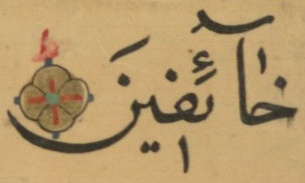 خَآئِفِينَ